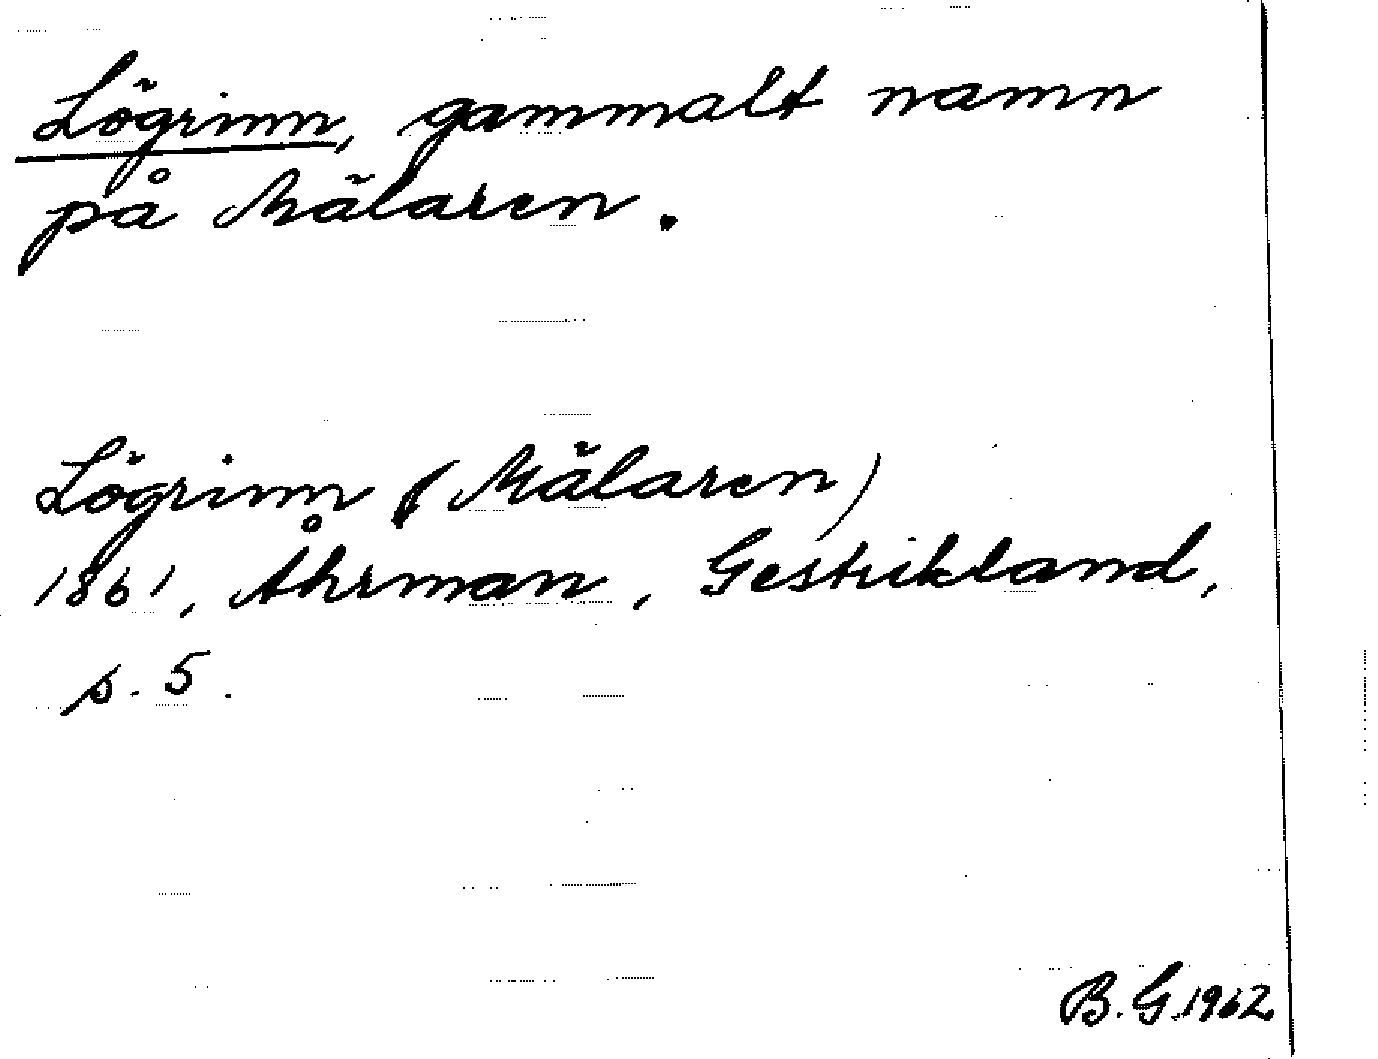 Lögrinn, gammalt namn
på Mälaren.
Lögrinn (Mälaren)
1861, Åhrman, Gestrikland,
s. 5.
B.G.1962